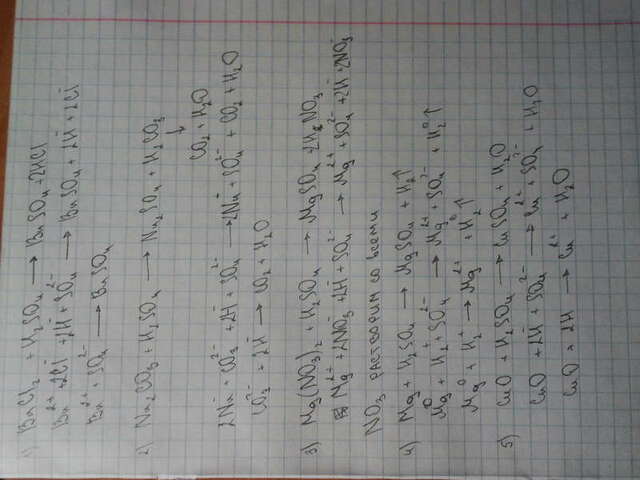 1) BaCl₂ + H₂SO₄ ⟶ BaSO₄ + 2HCl
Ba²⁺ + 2Cl⁻ + 2H⁺ + SO₄²⁻ ⟶ BaSO₄ + 2H⁺ + 2Cl⁻
Ba²⁺ + SO₄²⁻ ⟶ BaSO₄
2) Na₂CO₃ + H₂SO₄ ⟶ Na₂SO₄ + H₂CO₃
↓
CO₂ + H₂O
2Na⁺ + CO₃²⁻ + 2H⁺ + SO₄²⁻ ⟶ 2Na⁺ + SO₄²⁻ + CO₂ + H₂O
CO₃²⁻ + 2H⁺ ⟶ CO₂ + H₂O
3) Mg(NO₃)₂ + H₂SO₄ ⟶ MgSO₄ + 2HNO₃
Mg²⁺ + 2NO₃⁻ + 2H⁺ + SO₄²⁻ ⟶ Mg²⁺ + SO₄²⁻ + 2H⁺ + 2NO₃⁻
NO₃ растворим со всеми
4) Mg + H₂SO₄ ⟶ MgSO₄ + H₂↑
Mg⁰ + H₂⁺ + SO₄²⁻ ⟶ Mg²⁺ + SO₄²⁻ + H₂⁰↑
Mg⁰ + H₂⁺ ⟶ Mg²⁺ + H₂⁰↑
5) CuO + H₂SO₄ ⟶ CuSO₄ + H₂O
CuO + 2H⁺ + SO₄²⁻ ⟶ Cu²⁺ + SO₄²⁻ + H₂O
CuO + 2H⁺ ⟶ Cu²⁺ + H₂O